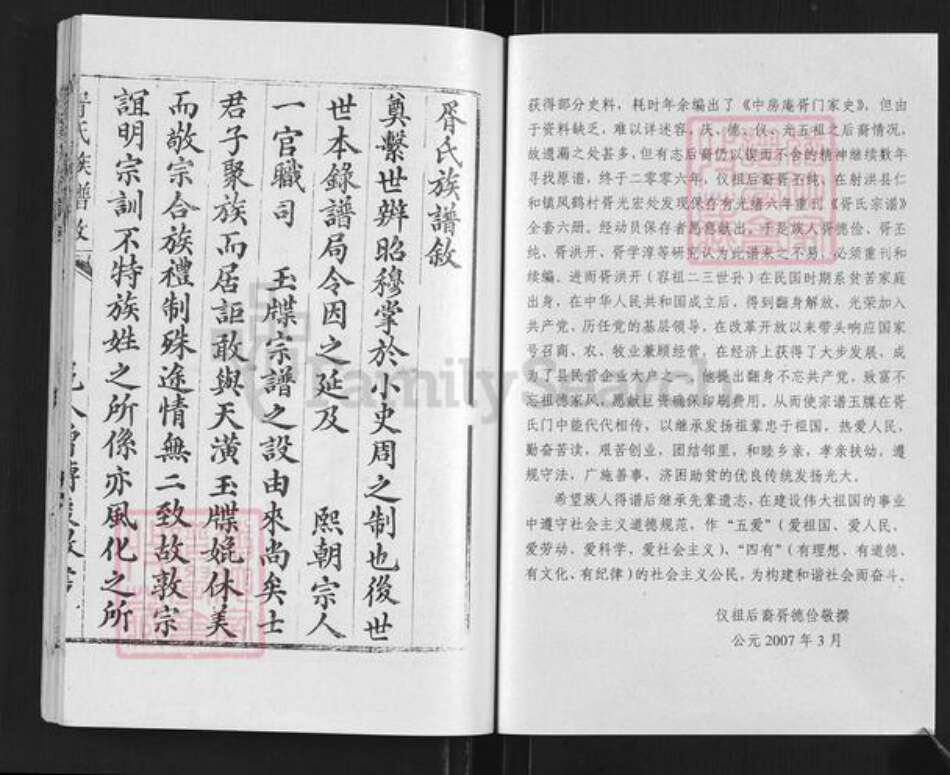 胥氏族譜敘
奠繫世辨昭穆掌於小史周之制也後世
世本錄譜局令因之延及 熙朝宗人
一官職司 玉牒宗譜之設由來尚矣士
君子聚族而居詎敢與天潢玉牒媲休美
而敬宗合族禮制殊途情無二致故敦宗
誼明宗訓不特族姓之所係亦風化之所
胥氏族譜敘
获得部分史料，耗时年余编出了《中房庵胥门家史》，但由
于资料缺乏，难以详述容、庆、德、仪、光五祖之后裔情况，
故遗漏之处甚多，但有志后裔仍以锲而不舍的精神继续数年
寻找原谱，终于二零零六年，仪祖后裔胥丕纯，在射洪县仁
和镇凤鹤村胥光宏处发现保存有光绪六年重刊《胥氏宗谱》
全套六册。经动员保存者愿意献出，于是族人胥德俭、胥丕
纯、胥洪开、胥学淳等研究认为此谱来之不易，必须重刊和
续编。进而胥洪开（容祖二三世孙）在民国时期系贫苦家庭
出身，在中华人民共和国成立后，得到翻身解放，光荣加入
共产党，历任党的基层领导，在改革开放以来带头响应国家
号召商、农、牧业兼顾经营，在经济上获得了大步发展，成
为了县民营企业大户之一，他提出翻身不忘共产党，致富不
忘祖德家风，愿献巨资确保印刷费用，从而使宗谱玉牒在胥
氏门中能代代相传，以继承发扬祖辈忠于祖国，热爱人民，
勤奋苦读，艰苦创业，团结邻里，和睦乡亲，孝亲扶幼，遵
规守法，广施善事，济困助贫的优良传统发扬光大。
希望族人得谱后继承先辈遗志，在建设伟大祖国的事业
中遵守社会主义道德规范，作“五爱”（爱祖国、爱人民、
爱劳动、爱科学，爱社会主义）、“四有”（有理想、有道德、
有文化、有纪律）的社会主义公民，为构建和谐社会而奋斗。
仪祖后裔胥德俭敬撰
公元 2007 年 3 月
FamilySearch